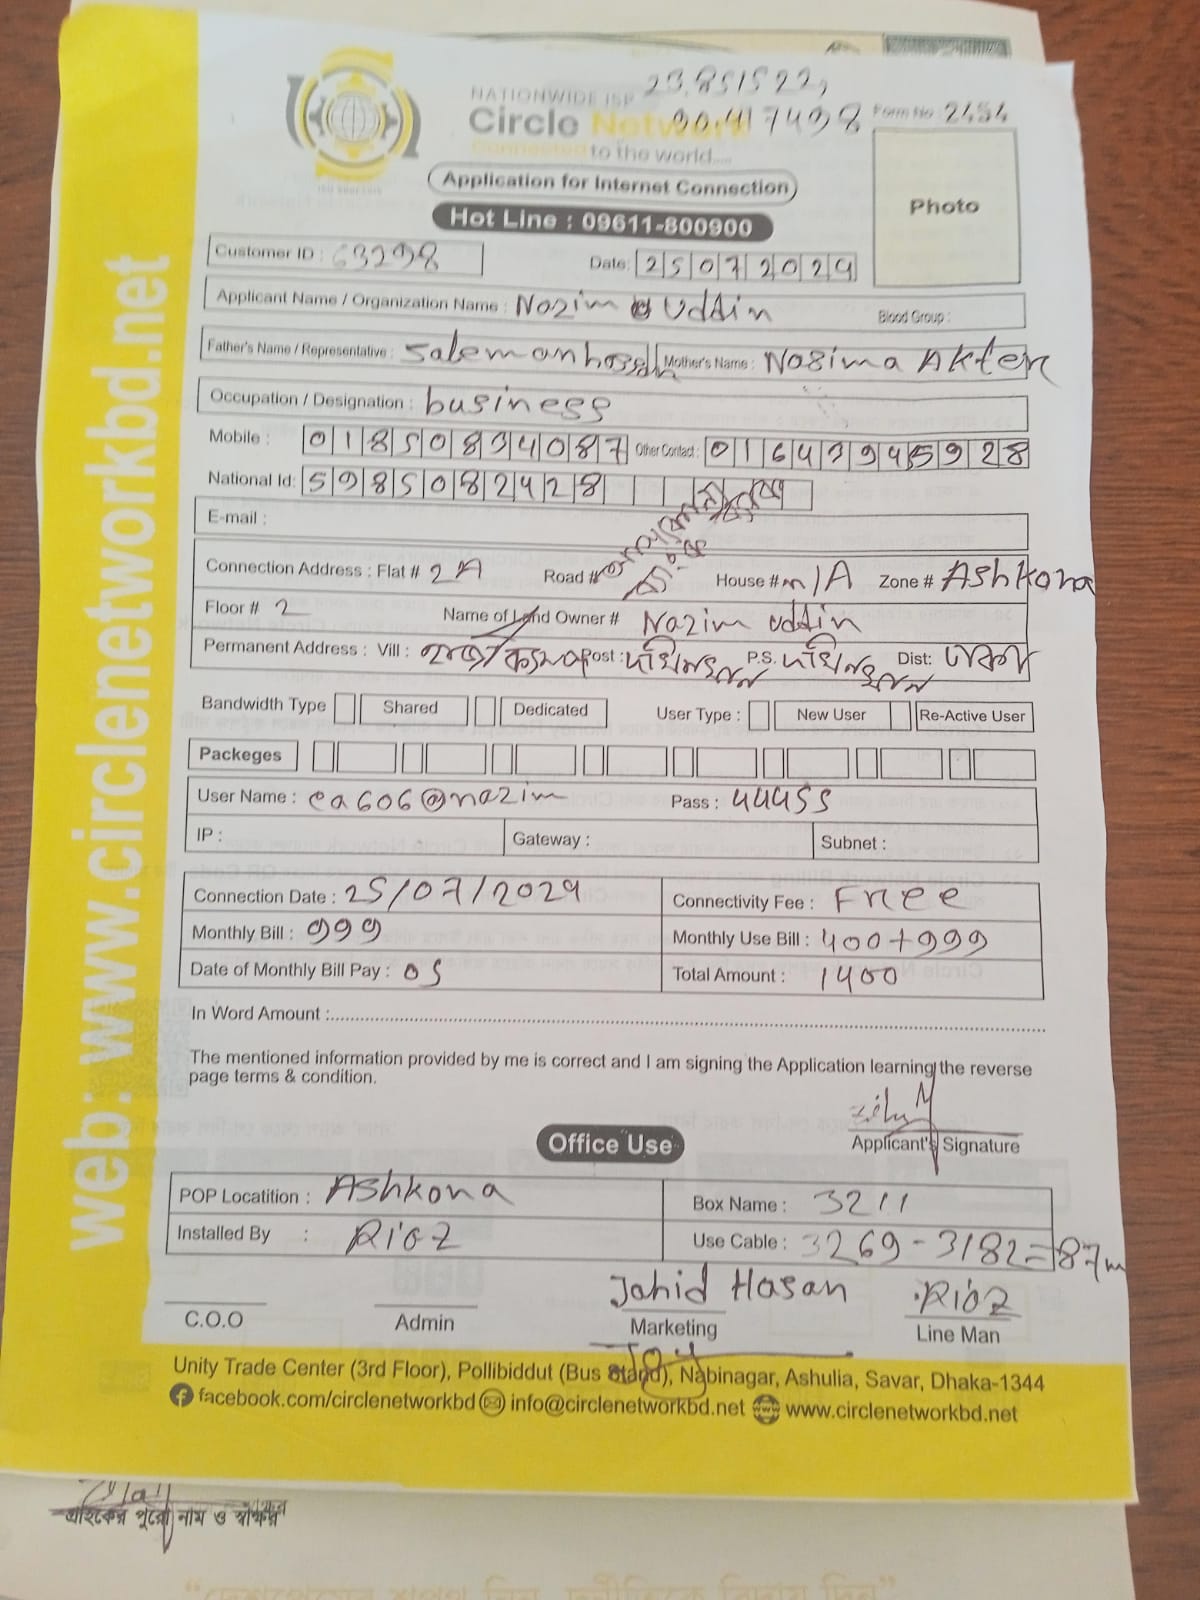 23.851522,
90.417498
NATIONWIDE ISP
Circle Network
Connected to the world....
Form No : 2454
Application for Internet Connection
Hot Line : 09611-800900
Photo
Customer ID : 63298
Date: 25072024
Applicant Name / Organization Name : Nazim Uddin Blood Group :
Father's Name / Representative : Saleman hossain Mother's Name : Nasima Akter
Occupation / Designation : business
Mobile : 01850834087 Other Contact : 01643945928
National Id: 5985082428
E-mail :
Connection Address : Flat # 2A Road # House # m/A Zone # Ashkona
Floor # 2 Name of Land Owner # Nazim uddin
Permanent Address : Vill : Post : দক্ষিনখান P.S. দক্ষিনখান Dist: ঢাকা
Bandwidth Type Shared Dedicated User Type : New User Re-Active User
Packeges
User Name : ca606@nazim Pass : 44455
IP : Gateway : Subnet :
Connection Date : 25/07/2024 Connectivity Fee : Free
Monthly Bill : 999 Monthly Use Bill : 400+999
Date of Monthly Bill Pay : 05 Total Amount : 1400
In Word Amount :
The mentioned information provided by me is correct and I am signing the Application learning the reverse
page terms & condition.
Applicant's Signature
Office Use
POP Locatition : Ashkona Box Name : 3211
Installed By : Riaz Use Cable : 3269-3182=87m
Jahid Hasan Riaz
C.O.O Admin Marketing Line Man
Unity Trade Center (3rd Floor), Pollibiddut (Bus Stand), Nabinagar, Ashulia, Savar, Dhaka-1344
facebook.com/circlenetworkbd info@circlenetworkbd.net www.circlenetworkbd.net
web: www.circlenetworkbd.net
গ্রাহকের পুরো নাম ও স্বাক্ষর